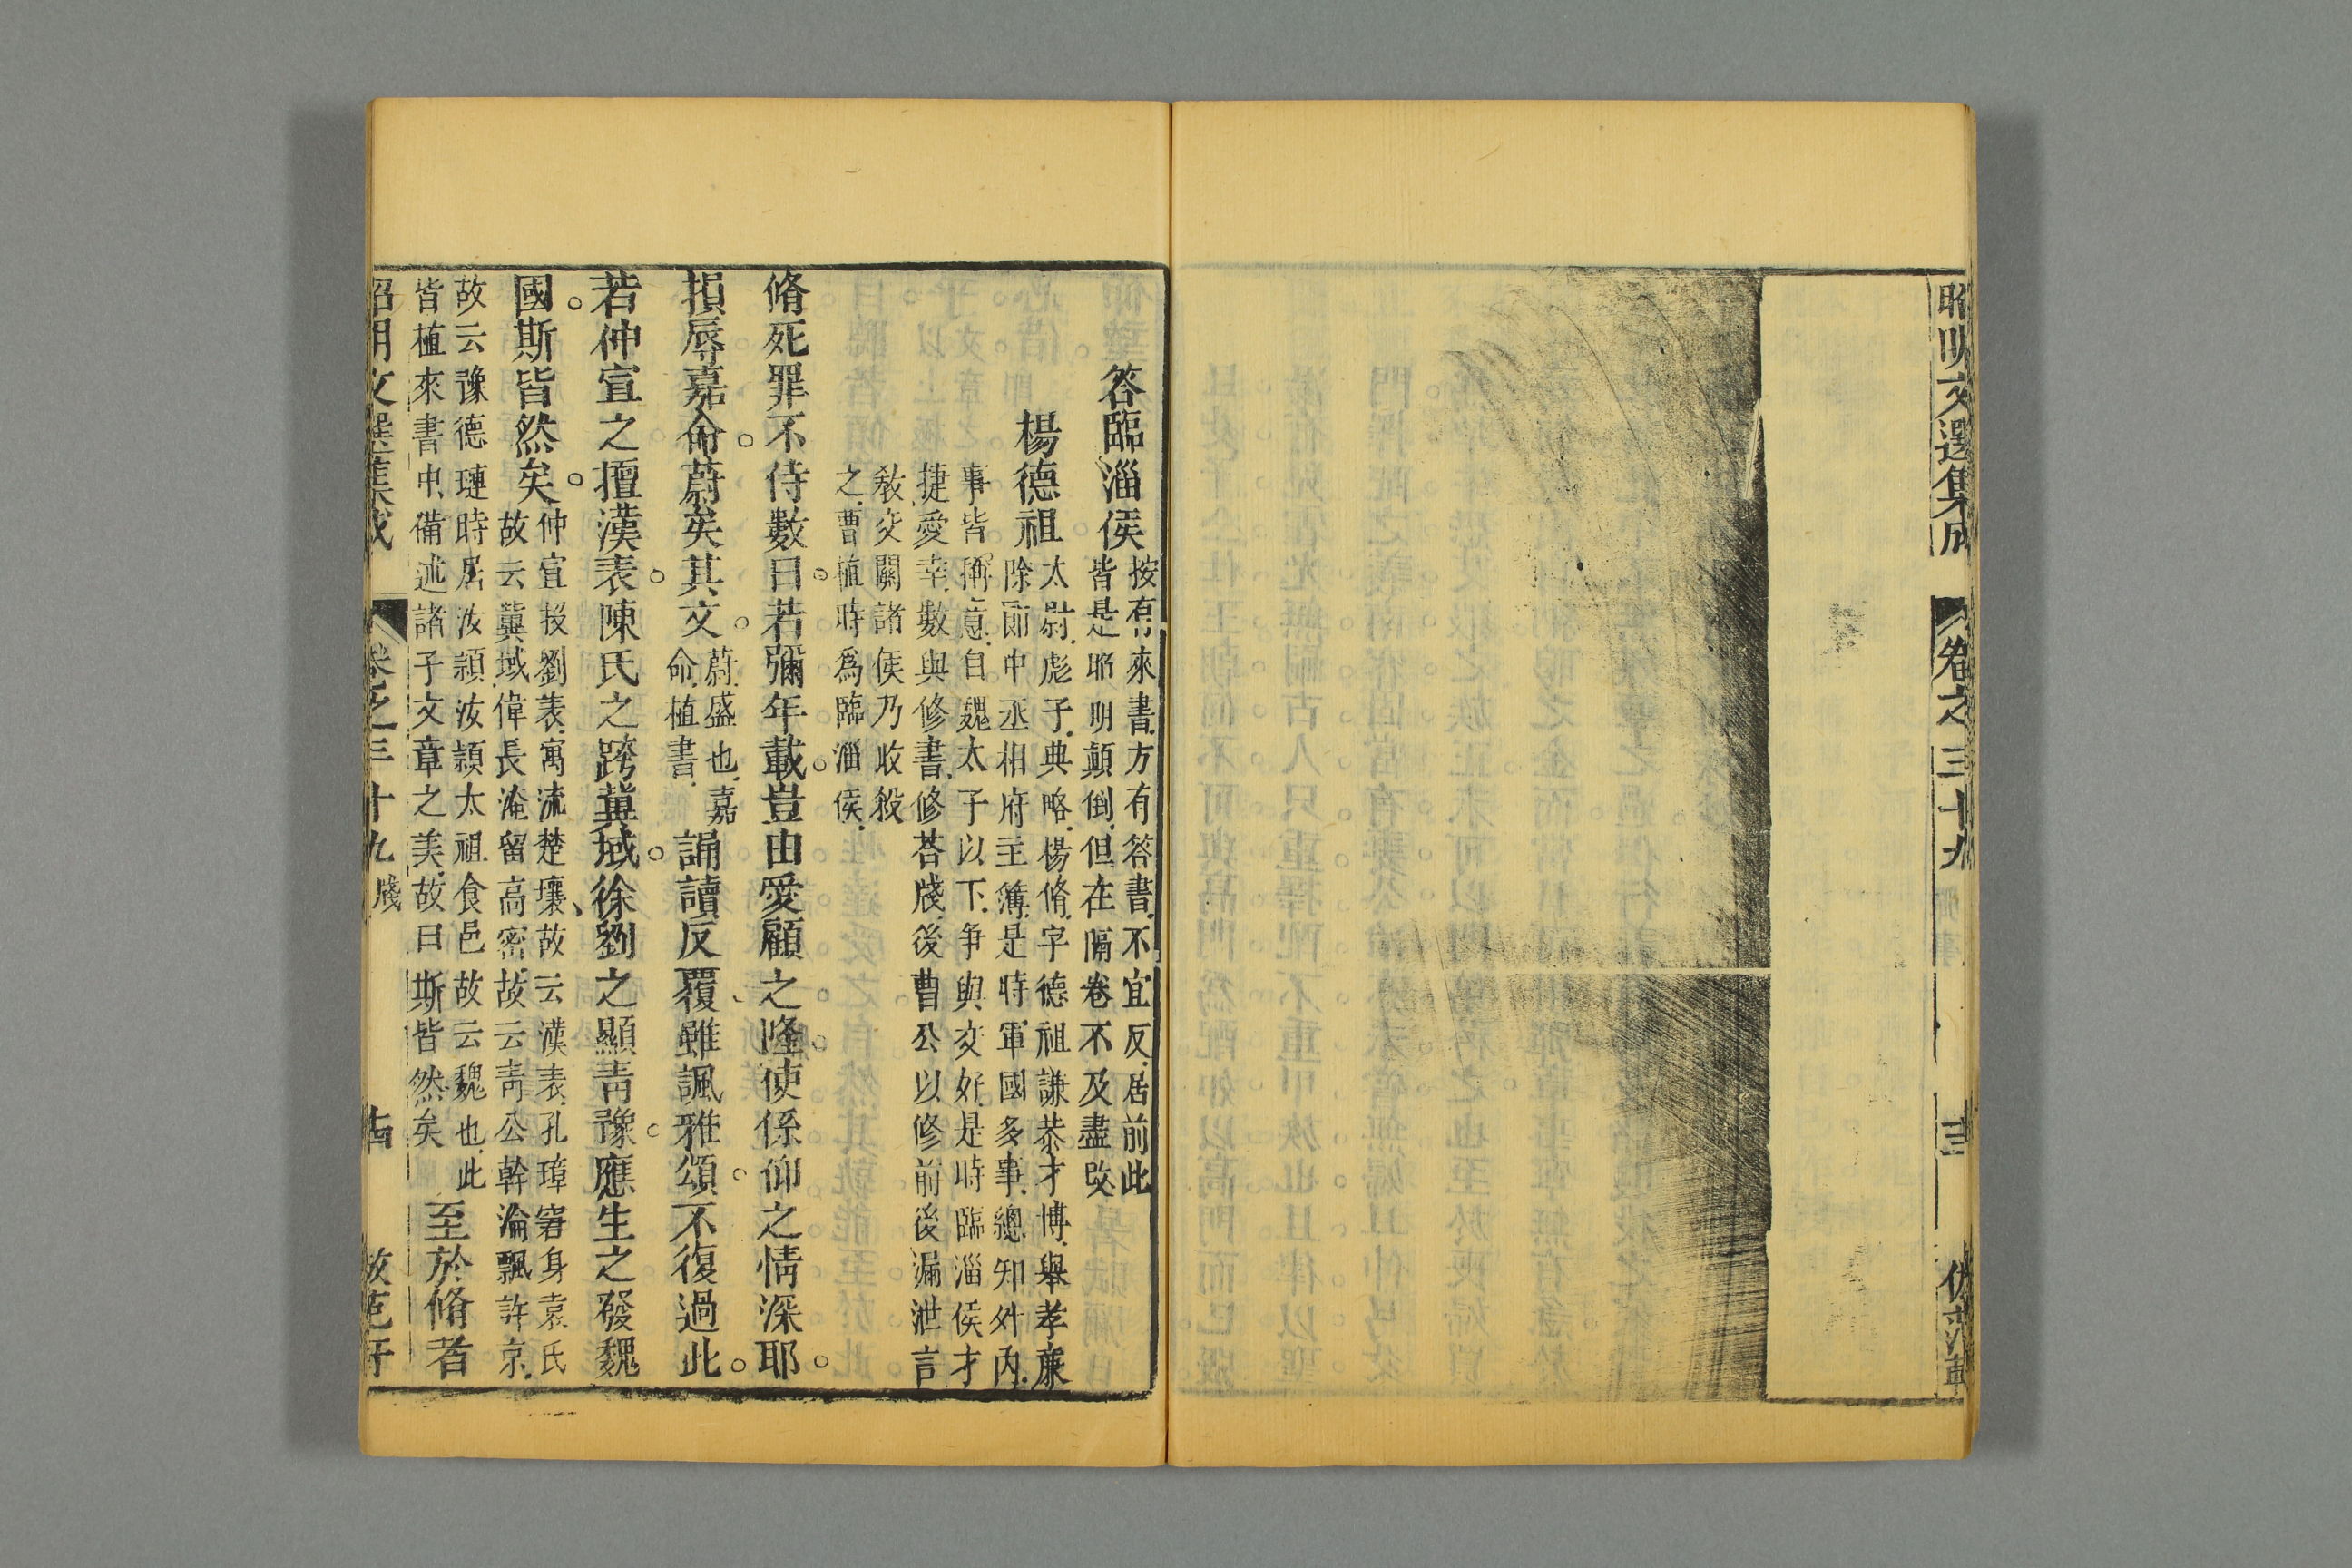 昭明文選集成 卷之三十九 三 仿范軒
答臨淄侯 按有來書方有答書不宜反居前此
皆是昭明顛倒但在隔卷不及盡改
楊德祖 太尉彪子典略楊脩字德祖謙恭才博舉孝廉
除郎中丞相府主簿是時軍國多事總知外內
事皆稱意自魏太子以下爭與交好是時臨淄侯才
捷愛幸數與修書修荅牋後曹公以修前後漏泄言
教交關諸侯乃收殺
之曹植時爲臨淄侯
脩死罪不侍數日若彌年載豈由愛顧之隆使係仰之情深耶
損辱嘉命蔚矣其文 蔚盛也嘉
命植書 誦讀反覆雖諷雅頌不復過此
若仲宣之擅漢表陳氏之跨冀域徐劉之顯靑豫應生之發魏
國斯皆然矣 仲宣投劉表寓流楚壤故云漢表孔璋窘身袁氏
故云冀域偉長淹留高密故云靑公幹淪飄許京
故云豫德璉時居汝潁汝潁太祖食邑故云魏也此
皆植來書中備述諸子文章之美故曰斯皆然矣 至於脩者
昭明文選集成 卷之三十九 牋